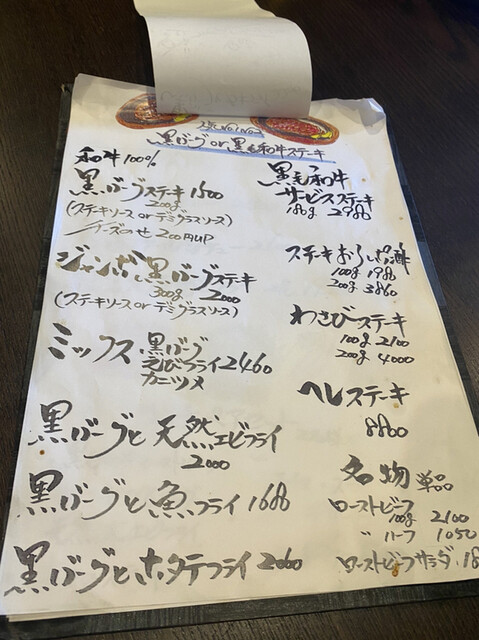 人気No.1 No.2
黒バーグor黒毛和牛ステーキ
和牛100%
黒バーグステーキ 1500
200g
(ステーキソース or デミグラスソース)
チーズのせ 200円UP
ジャンボ黒バーグステーキ
300g 2000
(ステーキソース or デミグラスソース)
ミックス 黒バーグ
えびフライ 2460
カニツメ
黒バーグと天然エビフライ
2000
黒バーグと魚フライ 1680
黒バーグとホタテフライ 2060
黒毛和牛
サービスステーキ
180g 2980
ステーキおろしポン酢
100g 1980
200g 3860
わさびステーキ
100g 2100
200g 4000
ヘレステーキ
8800
名物 単品
ローストビーフ
100g 2100
〃 ハーフ 1050
ローストビーフサラダ 18